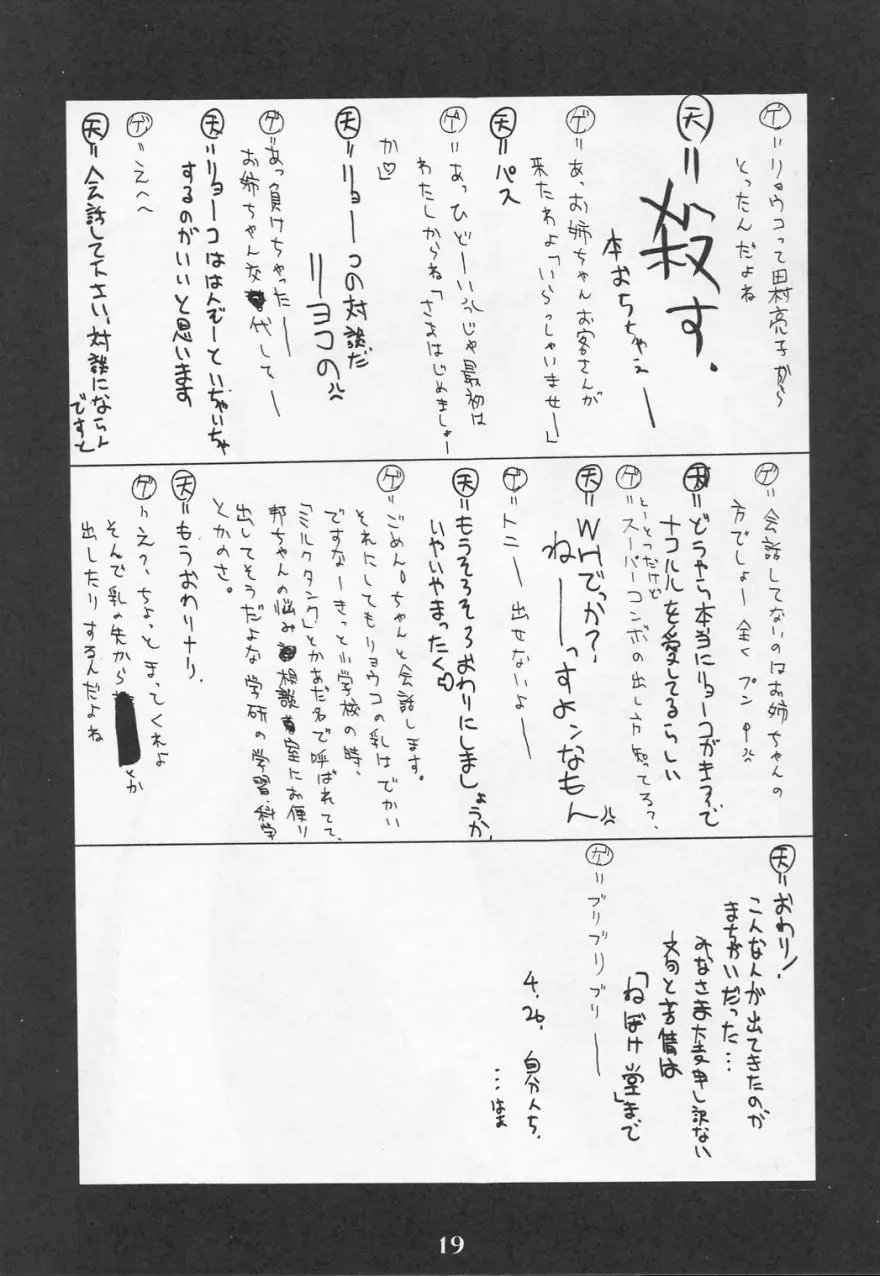 ゲ=リョウコって田村亮子から
とったんだよね
天=殺す.
本おちちゃえー
ゲ=あっお姉ちゃんお客さんが
来たわよ「いらっしゃいませー」
天=パス
ゲ=あっひどーいじゃ最初は
わたしからね「さあはじめましょー
か♡」
天=リョーコの対談だ
リーヨコの
ゲ=あっ負けちゃったー
お姉ちゃん交代してー
天=リョーコははんぞーといちゃいちゃ
するのがいいと思います
ゲ=えへへ
天=会話して下さい、対談にならんよ
ですと
ゲ=会話してないのはお姉ちゃんの
方でしょー全くプンプン
天=どうやら本当にリョーコがキライで
ナコルルを愛してるらしい
ゲ=とーとつだけど
スーパーコンボの出し方知ってる?、
天=WHでっか?、
ねーーっすよンなもん
ゲ=トニー出せないよー
天=もうそろそろおわりにしましょうか、
いやいやまったく
ゲ=ごめん。ちゃんと会話します。
それにしてもリョウコの乳はでかい
ですなーきっと小学校の時、
「ミルクタンク」とかあだ名で呼ばれてて、
邦ちゃんの悩み相談室にお便り
出してそうだよな学研の学習・科学
とかのさ。
天=もうおわりナリ.
ゲ=え?、ちょっとまってくれよ
そんで乳の先から
とか
出したりするんだよね
天=おわり!
こんな人が出てきたのが
まちがいだった…
みなさま大変申し訳ない
文句と苦情は
「ねぼけ堂」まで
ゲ=ブリブリブリー
4.26.自分んち.
…はあ
19